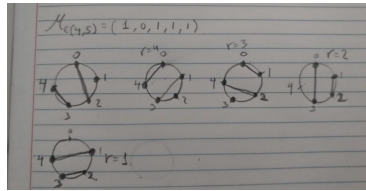 M_c(4,5) = (1,0,1,1,1)
0 1 2 3 4
r=4 0 1 2 3 4
r=3 0 1 2 3 4
r=2 0 1 2 3 4
0 1 2 3 4 r=1